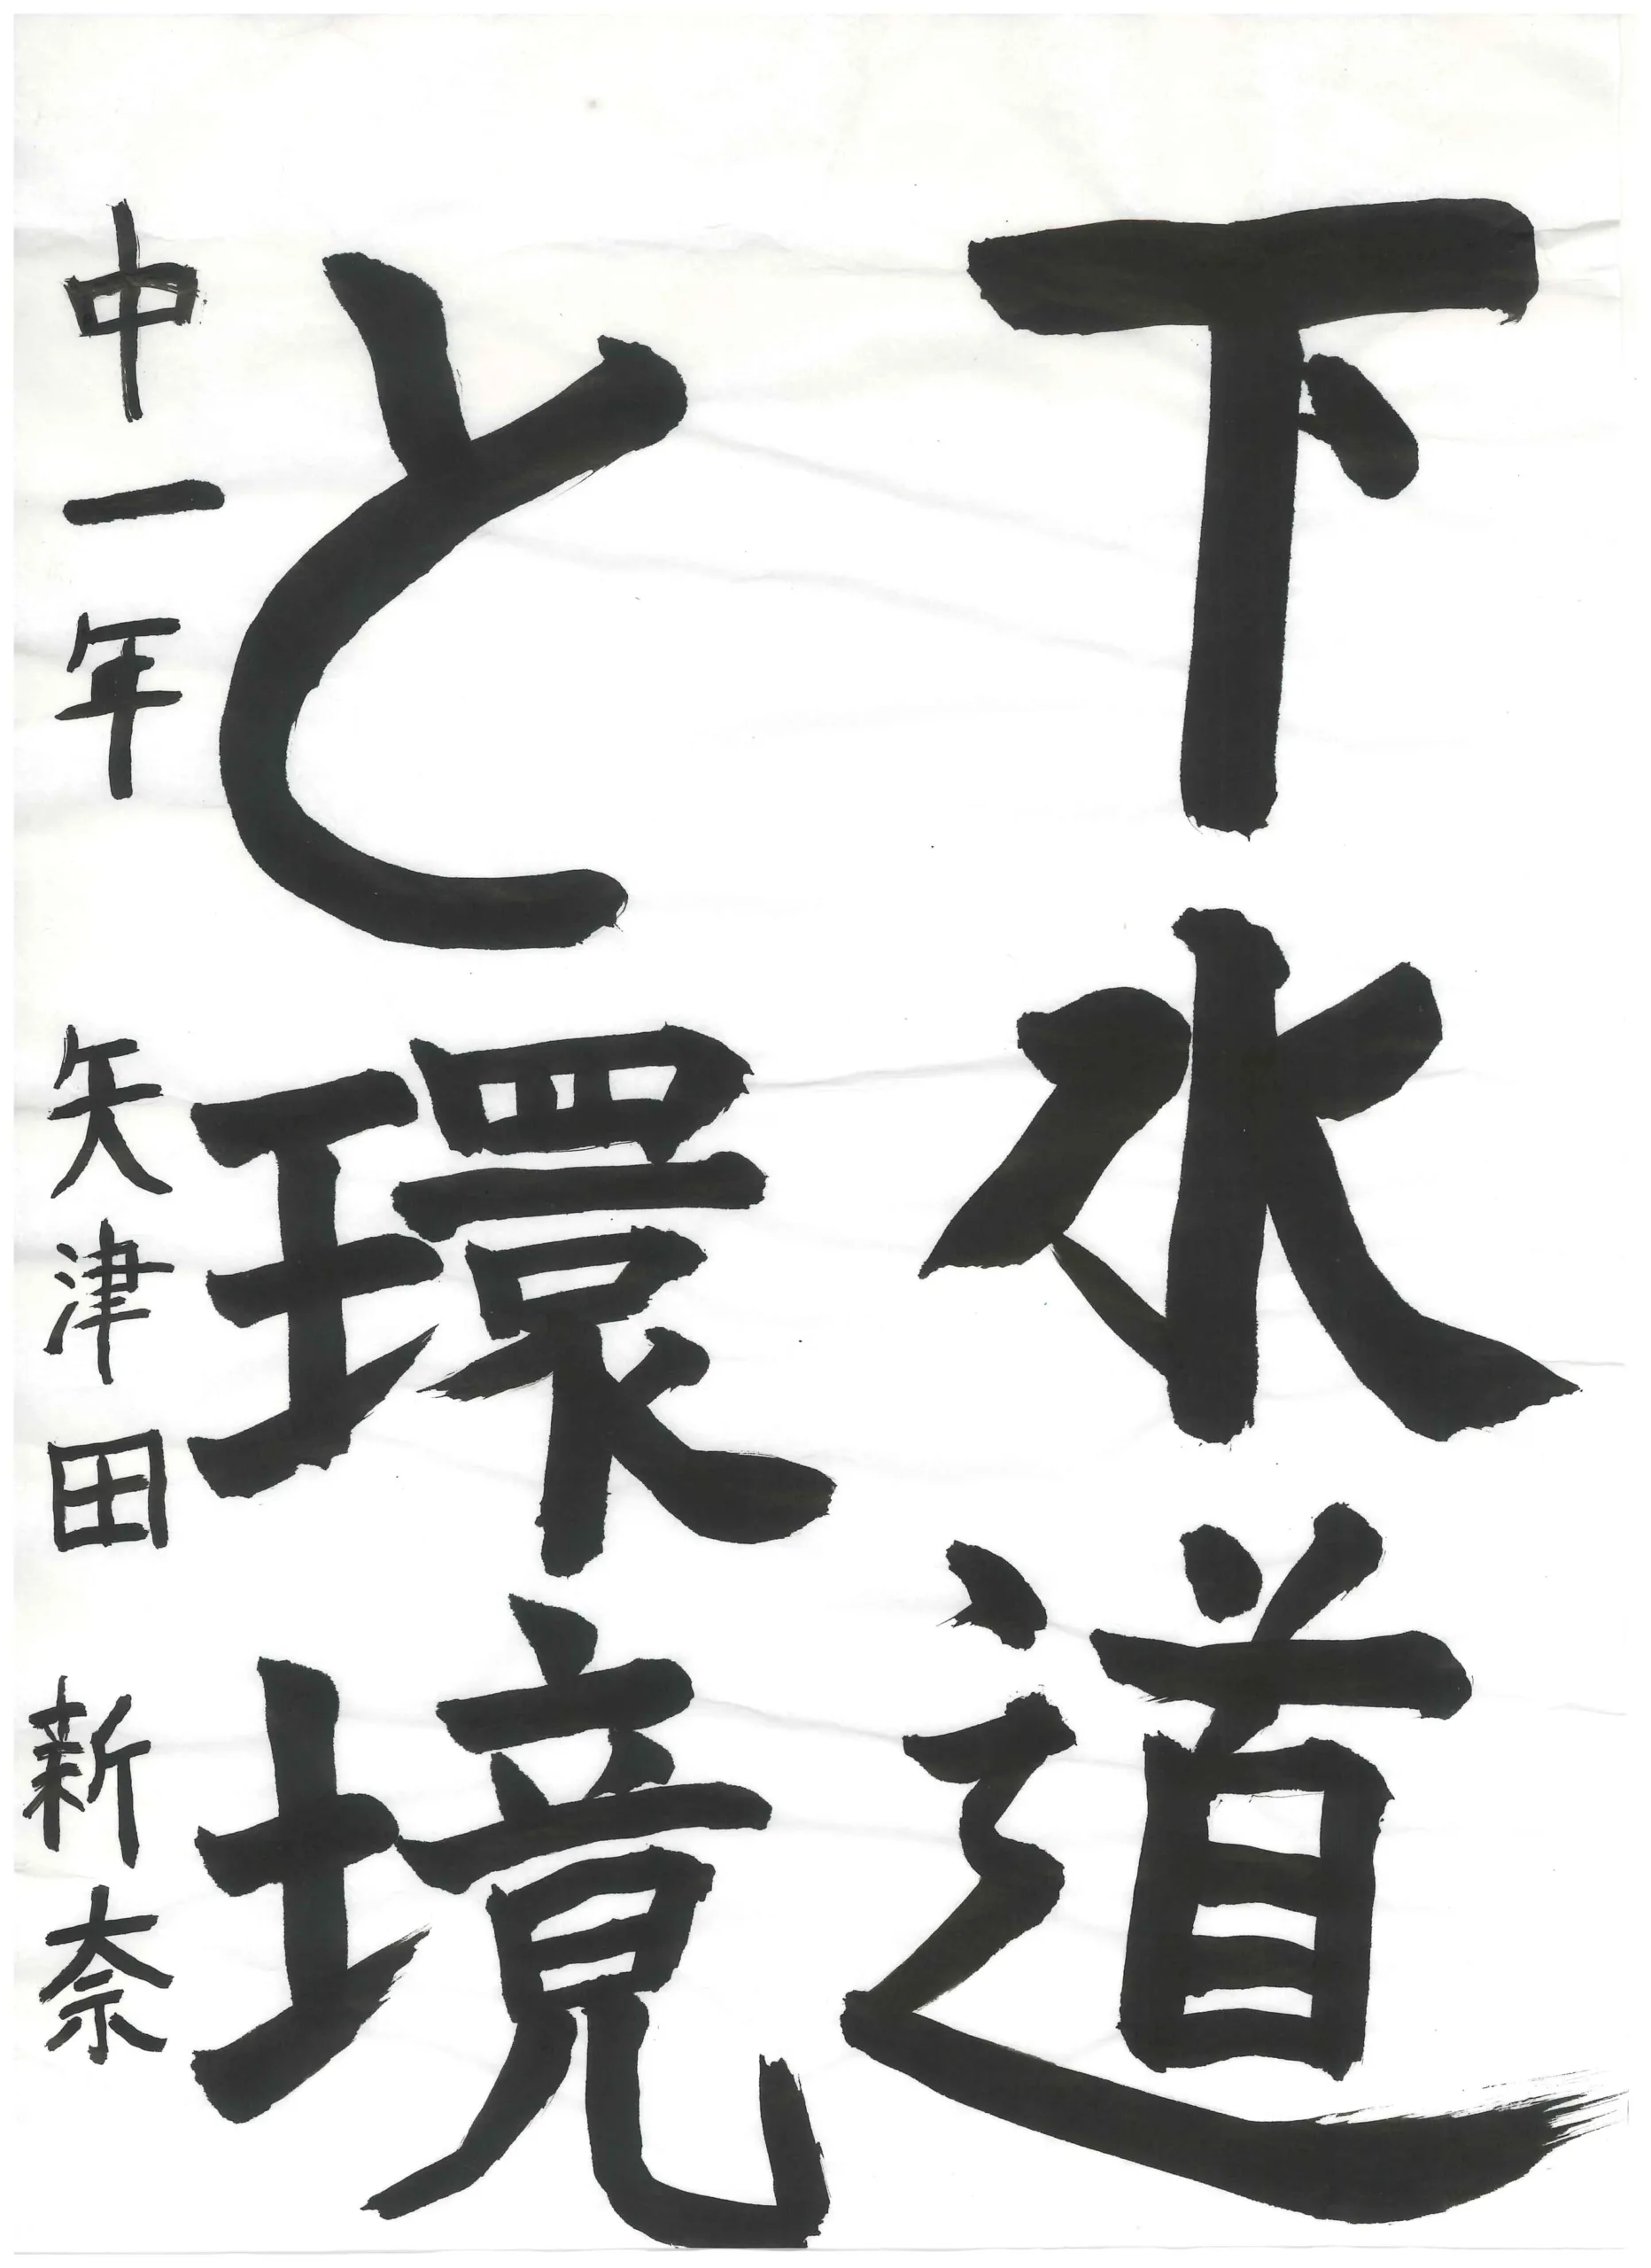 下水道
と環境
中一年 矢津田 新奈